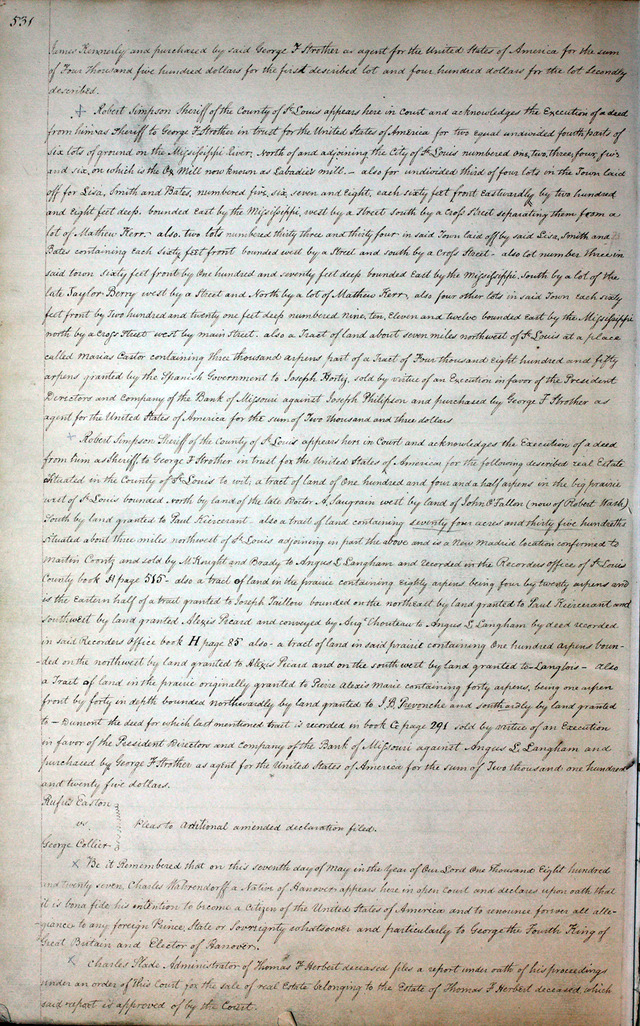 531
James Kennerly and purchased by said George F Strother as agent for the United States of America for the sum
of Four thousand five hundred dollars for the first described lot and four hundred dollars for the lot secondly
described.
+ Robert Simpson Sheriff of the County of St Louis appears here in Court and acknowledges the Execution of a deed
from him as Sheriff to George F Strother in trust for the United States of America for two equal undivided fourth parts of
six lots of ground on the Mississippi River, North of and adjoining the City of St Louis numbered one, two, three, four, five
and six, on which is the Ox Mill now known as Labadies mill. - also for undivided third of four lots in the Town laid
off for Lisa, Smith and Bates, numbered five, six, seven and Eight, each sixty feet front Eastwardly by two hundred
and Eight feet deep. bounded East by the Mississippi, west by a Street South by a Cross Street separating them from a
lot of Mathew Kerr - also two lots numbered thirty three and thirty four in said Town laid off by said Lisa, Smith and
Bates containing each Sixty feet front bounded west by a Street and south by a Cross Street - also lot number three in
said town Sixty feet front by One hundred and seventy feet deep bounded East by the Mississippi, South by a lot of the
late Taylor Berry west by a Street and North by a lot of Mathew Kerr, also four other lots in said Town each sixty
feet front by Two hundred and twenty one feet deep numbered nine, ten, Eleven and twelve bounded East by the Mississippi
north by a Cross Street west by main Street. also a Tract of land about seven miles northwest of St Louis at a place
called Marias Castor containing three thousand arpens part of a Tract of Four thousand Eight hundred and fifty
arpens granted by the Spanish Government to Joseph Hortiz, sold by virtue of an Execution in favor of the President
Directors and Company of the Bank of Missouri against Joseph Philipson and purchased by George F Strother as
agent for the United States of America for the sum of Two thousand and three dollars
+ Robert Simpson Sheriff of the County of St Louis appears here in Court and acknowledges the Execution of a deed
from him as Sheriff, to George F Strother in trust for the United States of America for the following described real Estate
Situated in the County of St Louis to wit, a tract of land of One hundred and four and a half arpens in the big prairie
west of St Louis bounded North by land of the late Doctor A. Saugrain west by land of John O'Fallon (now of Robert Wash)
South by land granted to Paul Kiercerant - also a trait of land containing seventy four acres and thirty five hundredths
situated about three miles northwest of St Louis adjoining in part the above and is a New Madrid location confirmed to
Martin Coontz and sold by McKnight and Brady to Angus L Langham and recorded in the Recorders office of St Louis
County book H page 515 - also a tract of land in the prairie containing Eighty arpens being four by twenty arpens and
is the Eastern half of a trait granted to Joseph Taillow bounded on the northeast by land granted to Paul Kiercerant and
southwest by land granted Alexis Picard and conveyed by Augt Chouteau to Angus L Langham by deed recorded
in said Recorders Office book H page 85 also - a tract of land in said prairie containing One hundred arpens boun-
-ded on the northwest by land granted to Alexis Picard and on the south west by land granted to - Langlois - also
a Tract of land in the prairie originally granted to Pierre Alexis Marie containing forty arpens, being one arpen
front by forty in depth bounded northwardly by land granted to J B Provonche and southardly by land granted
to - Dumont the deed for which last mentioned trait is recorded in book C page 291 sold by virtue of an Execution
in favor of the President Directors and Company of the Bank of Missouri against Angus L Langham and
purchased by George F Strother as agent for the United States of America for the sum of Two thousand one hundred
and twenty five dollars.
Rufus Easton
vs. Pleas to Aditional amended declaration filed.
George Collier
x Be it Remembered that on this seventh day of May in the Year of Our Lord One Thousand Eight hundred
and twenty seven, Charles Wahrendorff a Native of Hanover appears here in open Court and declares upon oath that
it is bona fide his intention to become a Citizen of the United States of America and to renounce forever all alle-
giance to any foreign Prince, State or Sovereignty whatsoever and particularly to George the Fourth King of
Great Britain and Elector of Hanover.
x Charles Slade Administrator of Thomas F Herbert deceased files a report under oath of his proceedings
under an order of this Court for the sale of real Estate belonging to the Estate of Thomas F Herbert deceased which
said report is approved of by the Court.